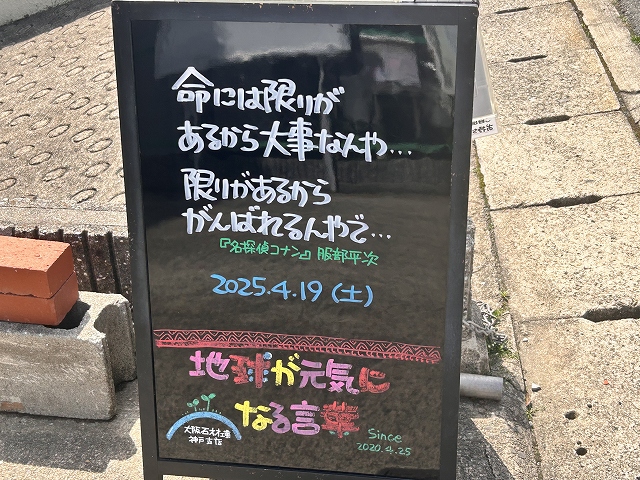 命には限りが
あるから大事なんや...
限りがあるから
がんばれるんやで...
『名探偵コナン』 服部平次
2025.4.19（土）
地球が元気に
なる言葉
大阪石材工業
神戸支店
Since
2020.4.25